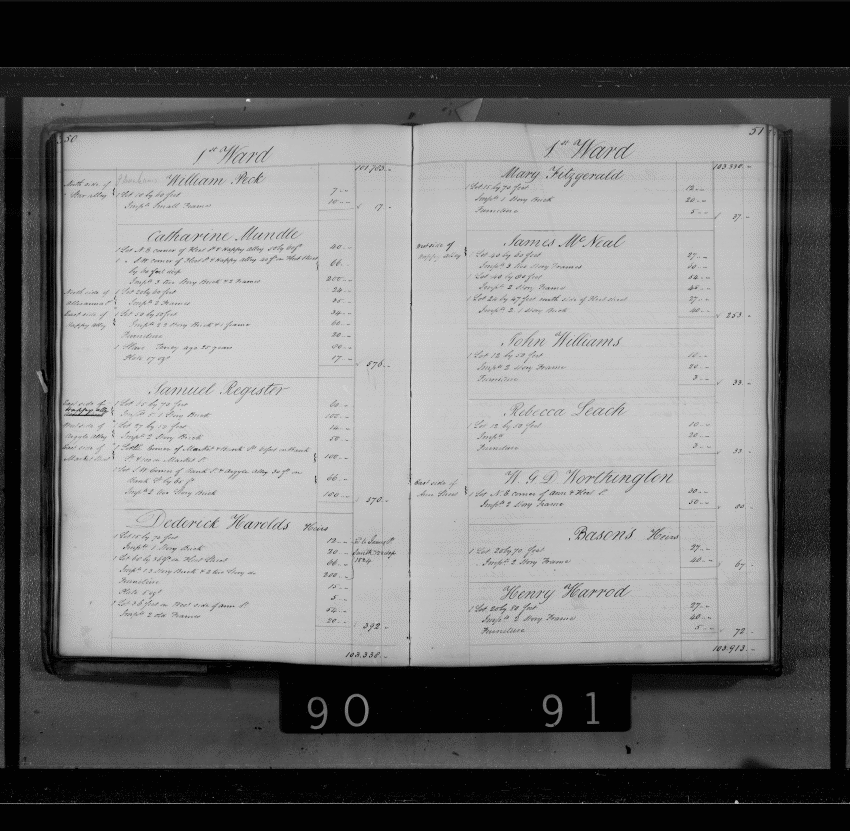 50
1st Ward
101,753.-
North side of
Star alley
William Peck
1 Lot 10 by 60 feet 7--
Impt Small Frame 10--
17.-
Catharine Mundle
1 Lot N.E. corner of West St & Happy Alley 50 by 60 ft 40--
1 S.W. corner of West St & Happy Alley 40 ft on West Street
by 60 feet deep 66--
Impt 3 two Story Brick & 2 Frames 200--
North side of
Alisanna St
1 Lot 20 by 60 feet 24--
Impt 2 Frames 35--
East side of
Happy Alley
1 Lot 50 by 50 feet 34--
Impt 2 Story Brick & 1 frame 60--
Furniture 20--
1 Slave Fanny age 25 years
Plate 17 ozs 17--
576.-
Samuel Register
East side of
1 Lot 15 by 70 feet
Impt 1 Story Brick 100--
West side of
Argyle Alley
1 Lot 27 by 50 feet 14--
Impt 2 Story Brick 50--
East side of
Market Street
1 Lot Corner of Market & Bank St feet on Bank
St & on Market St 100--
1 Lot S.W. Corner of Bank St & Argyle Alley 30 ft on
Bank St by 60 ft 66--
Impt 2 two Story Brick 150--
570.-
Dederick Harold's Heirs
1 Lot 15 by 70 feet 12--
Impt 1 Story Brick 20--
1 Lot 60 by 36 ft on West Street 66--
Impt 1 3 Story Brick & 2 two Story do 200--
1824
Furniture 15--
Plate 5 ozs 5--
2 Lot 36 feet on West side of Ann St 54--
Impt 2 Old Frames 20--
392.-
103,338.-
51
1st Ward
103.330.-
Mary Fitzgerald
1 Lot 15 by 70 feet 12--
Impt 1 Story Brick 20--
Furniture 5--
37.-
James McNeal
West side of
Happy Alley
1 Lot 40 by 60 feet 27--
Impt 3 two Story Frames 60--
1 Lot 40 by 50 feet 54--
Impt 2 Story Frame 45--
1 Lot 20 by 47 feet south side of West Street 27--
Impt 2 1 Story Brick 40--
253.-
John Williams
1 Lot 12 by 50 feet 10--
Impt 2 Story Frame 20--
Furniture 3--
33.-
Rebecca Leach
1 Lot 12 by 50 feet 10--
Impt 20--
Furniture 3--
33.-
W. G. D. Worthington
East side of
Ann Street
1 Lot N.E. corner of Ann & West St 30--
Impt 2 Story Frame 50--
80.-
Bason's Heirs
1 Lot 20 by 70 feet 27--
Impt 2 Story Frame 40--
67.-
Henry Harrod
1 Lot 20 by 50 feet 27--
Impt 2 Story Frame 40--
Furniture 5--
72.-
103.913.-
90 91